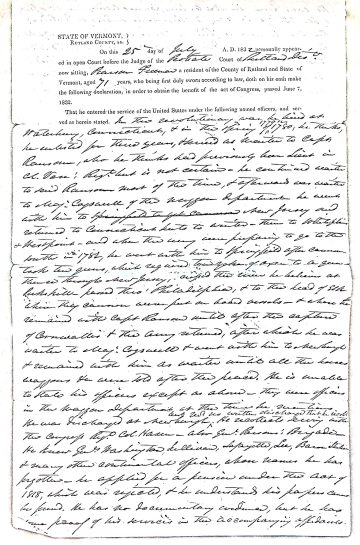 STATE OF VERMONT,
RUTLAND COUNTY, ss. }
On this 25th day of July A. D. 1832 personally appear-
ed in open Court before the Judge of the Probate Court of Rutland Dist
now sitting, Ransom Freeman a resident of the County of Rutland and State of
Vermont, aged 71 years, who being first duly sworn according to law, doth on his oath make
the following declaration, in order to obtain the benefit of the act of Congress, passed June 7,
1832.
That he entered the service of the United States under the following named officers, and ser-
ved as herein stated. In the revolutionary war he lived at
Waterbury, Connecticut, & in the Spring of 1780, he thinks,
he enlisted for three years, & served as waiter to Capt
Ransom, who he thinks had previously been Lieut in
but is not certain - he continued waiter
to said Ransom most of the time, & afterward was waiter
to Maj. Cogswell of the Waggon Department he went
with him to New Jersey and
returned to Connecticut to winter - then to
& Westpoint - and when the army were preparing to go to the
South in 1781, he went with him to Springfield after cannon
took ten guns, which required three yoke of oxen to a gun
thence through New Jersey - crossed the river he believes at
Peekskill passed thro' Philadelphia, & to the head of Elk
where they cannon were put on board vessels - & where he
remained with Capt Ransom until after the capture
of Cornwallis & the army returned, after which he was
waiter to Maj. Cogswell & went with him to Newburgh
& remained with him as waiter until all the horses
waggons &c were sold after the peace. He is unable
to state his officers except as above - they were officers
in the Waggon Department at the time he mentions
He was discharged at Newburgh, He recollects seeing with
the Congress Regt Col. Hazen & also Genl. Parsons' Brigade
He knew Genl Washington, Sullivan, Lafayette, Lee, Baron Steuben
& many other continental officers, whose names he has
forgotten - he applied for a pension under the act of
1818, which was rejected, & he understands his papers cannot
be found. He has no documentary evidence, but he has
some proof of his services in the accompanying affidavits.